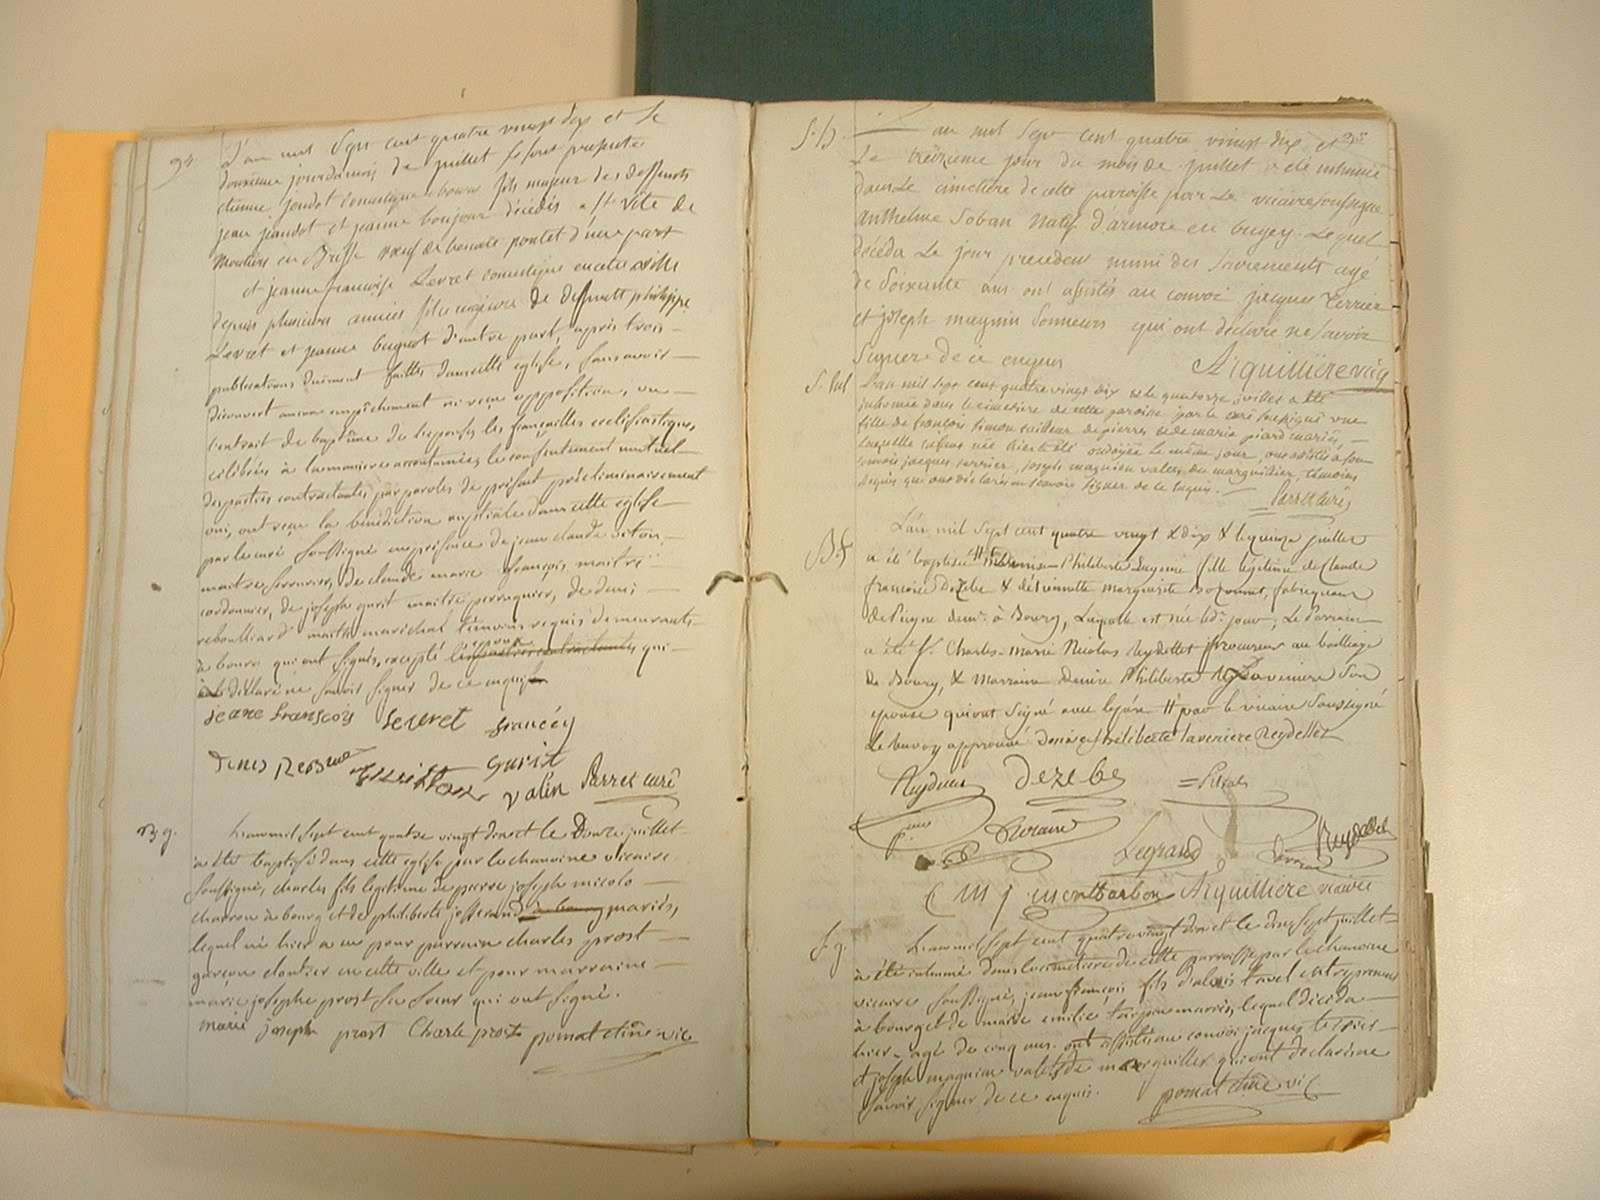 L'an mil Sept cent quatre vingt dix et le
douzieme jour du mois de juillet se sont presentés
etienne jandot domestique a bourg fils majeur des deffunts
jean jandot et jeanne bonjour décédés a St
de d'une part
et jeanne francoise Levret domestique en cette ville
depuis plusieurs années fille majeure de deffunts philippe
Levret et jeanne d'autre part, après trois
publications duement faittes dans cette eglise, sans avoir
découvert aucun empêchement ni reçu opposition, vu
l'extrait de baptême de les fiançailles ecclésiastiques
célébrées à la maniere accoutumée, le consentement mutuel
des parties contractantes par paroles de présent préliminairement
oui, ont reçu la bénédiction nuptiale dans cette eglise
par le curé soussigné en présence de jean claude viton,
maitre serrurier, de claude marie françois maitre
cordonnier, de joseph gurit maitre perruquier, de denis
reboulliard maitre marechal témoins requis demeurants
à bourg qui ont signés, excepté les parties contractantes qui
ont declaré ne savoir signer de ce enquis
jeane françois Levret francéy
denis gurit
valin Parret curé
B. g.
L'an mil sept cent quatre vingt dix et le Douze juillet
a été baptisé dans cette eglise par le chanoine vicaire
soussigné, charles fils legitime de pierre joseph micolo
charron à bourg et de philiberte josserand à bourg mariés,
lequel né hier a eu pour parrain charles prost
garçon cloutier en cette ville et pour marraine
marie josephe prost sa soeur qui ont signé.
marie joseph prost Charle prost pomat chne vic
S. h.
L'an mil sept cent quatre vingt dix et
Le treizieme jour du mois de juillet a été inhumé
dans Le cimetière de cette paroisse par Le vicaire soussigné
anthelme Soban natif d'armoie en bugey. Lequel
décéda Le jour precedent muni des sacrements agé
de soixante ans ont assistés au convoi jacques terrier
et joseph magnin Sonneurs qui ont déclaré ne savoir
signer de ce enquis Aiguillière vic
S.
L'an mil sept cent quatre vingt dix et le quatorze juillet a été
inhumée dans le cimetière de cette paroisse par le curé soussigné une
fille de françois simon tailleur de pierres et de marie piard mariés,
laquelle enfant née hier a été ondoyée le même jour, ont assistés à son
convoi jacques terrier, joseph magnin valets du marguillier, témoins
requis qui ont déclaré ne savoir signer de ce enquis.
Parret curé
B. f.
L'an mil sept cent quatre vingt & dix & le quinze juillet
a été baptisée Denise Philiberte Eugenie fille légitime de Claude
françois Dezebe & d'etiennette marguerite Bozonnet, fabriquant
de Peigne demt. à Bourg, Laquelle est née led. jour; Le Parrain
a été Sr. Charles-marie Nicolas Reydellet procureur au bailliage
de Bourg, & Marraine Denise Philiberte Laveniere Son
epouse qui ont Signé avec le père # par le vicaire Soussigné
Le renvoy approuvé denise philiberte laveniere Reydellet
Dezebe
Reydellet
Legrand
C M J montbarbon Aiguillière vicaire
S. g.
L'an mil sept cent quatre vingt dix et le dix sept juillet
a été inhumé dans le cimetière de cette parroisse par le chanoine
vicaire soussigné, jean françois fils d'alexis tavel entrepreneur
à bourg et de marie emilie mariés, lequel décéda
hier, agé de cinq ans. ont assistés au convoi jacques terrier
et joseph magnin valets de marguillier qui ont déclaré ne
savoir signer de ce enquis. pomat chne vic